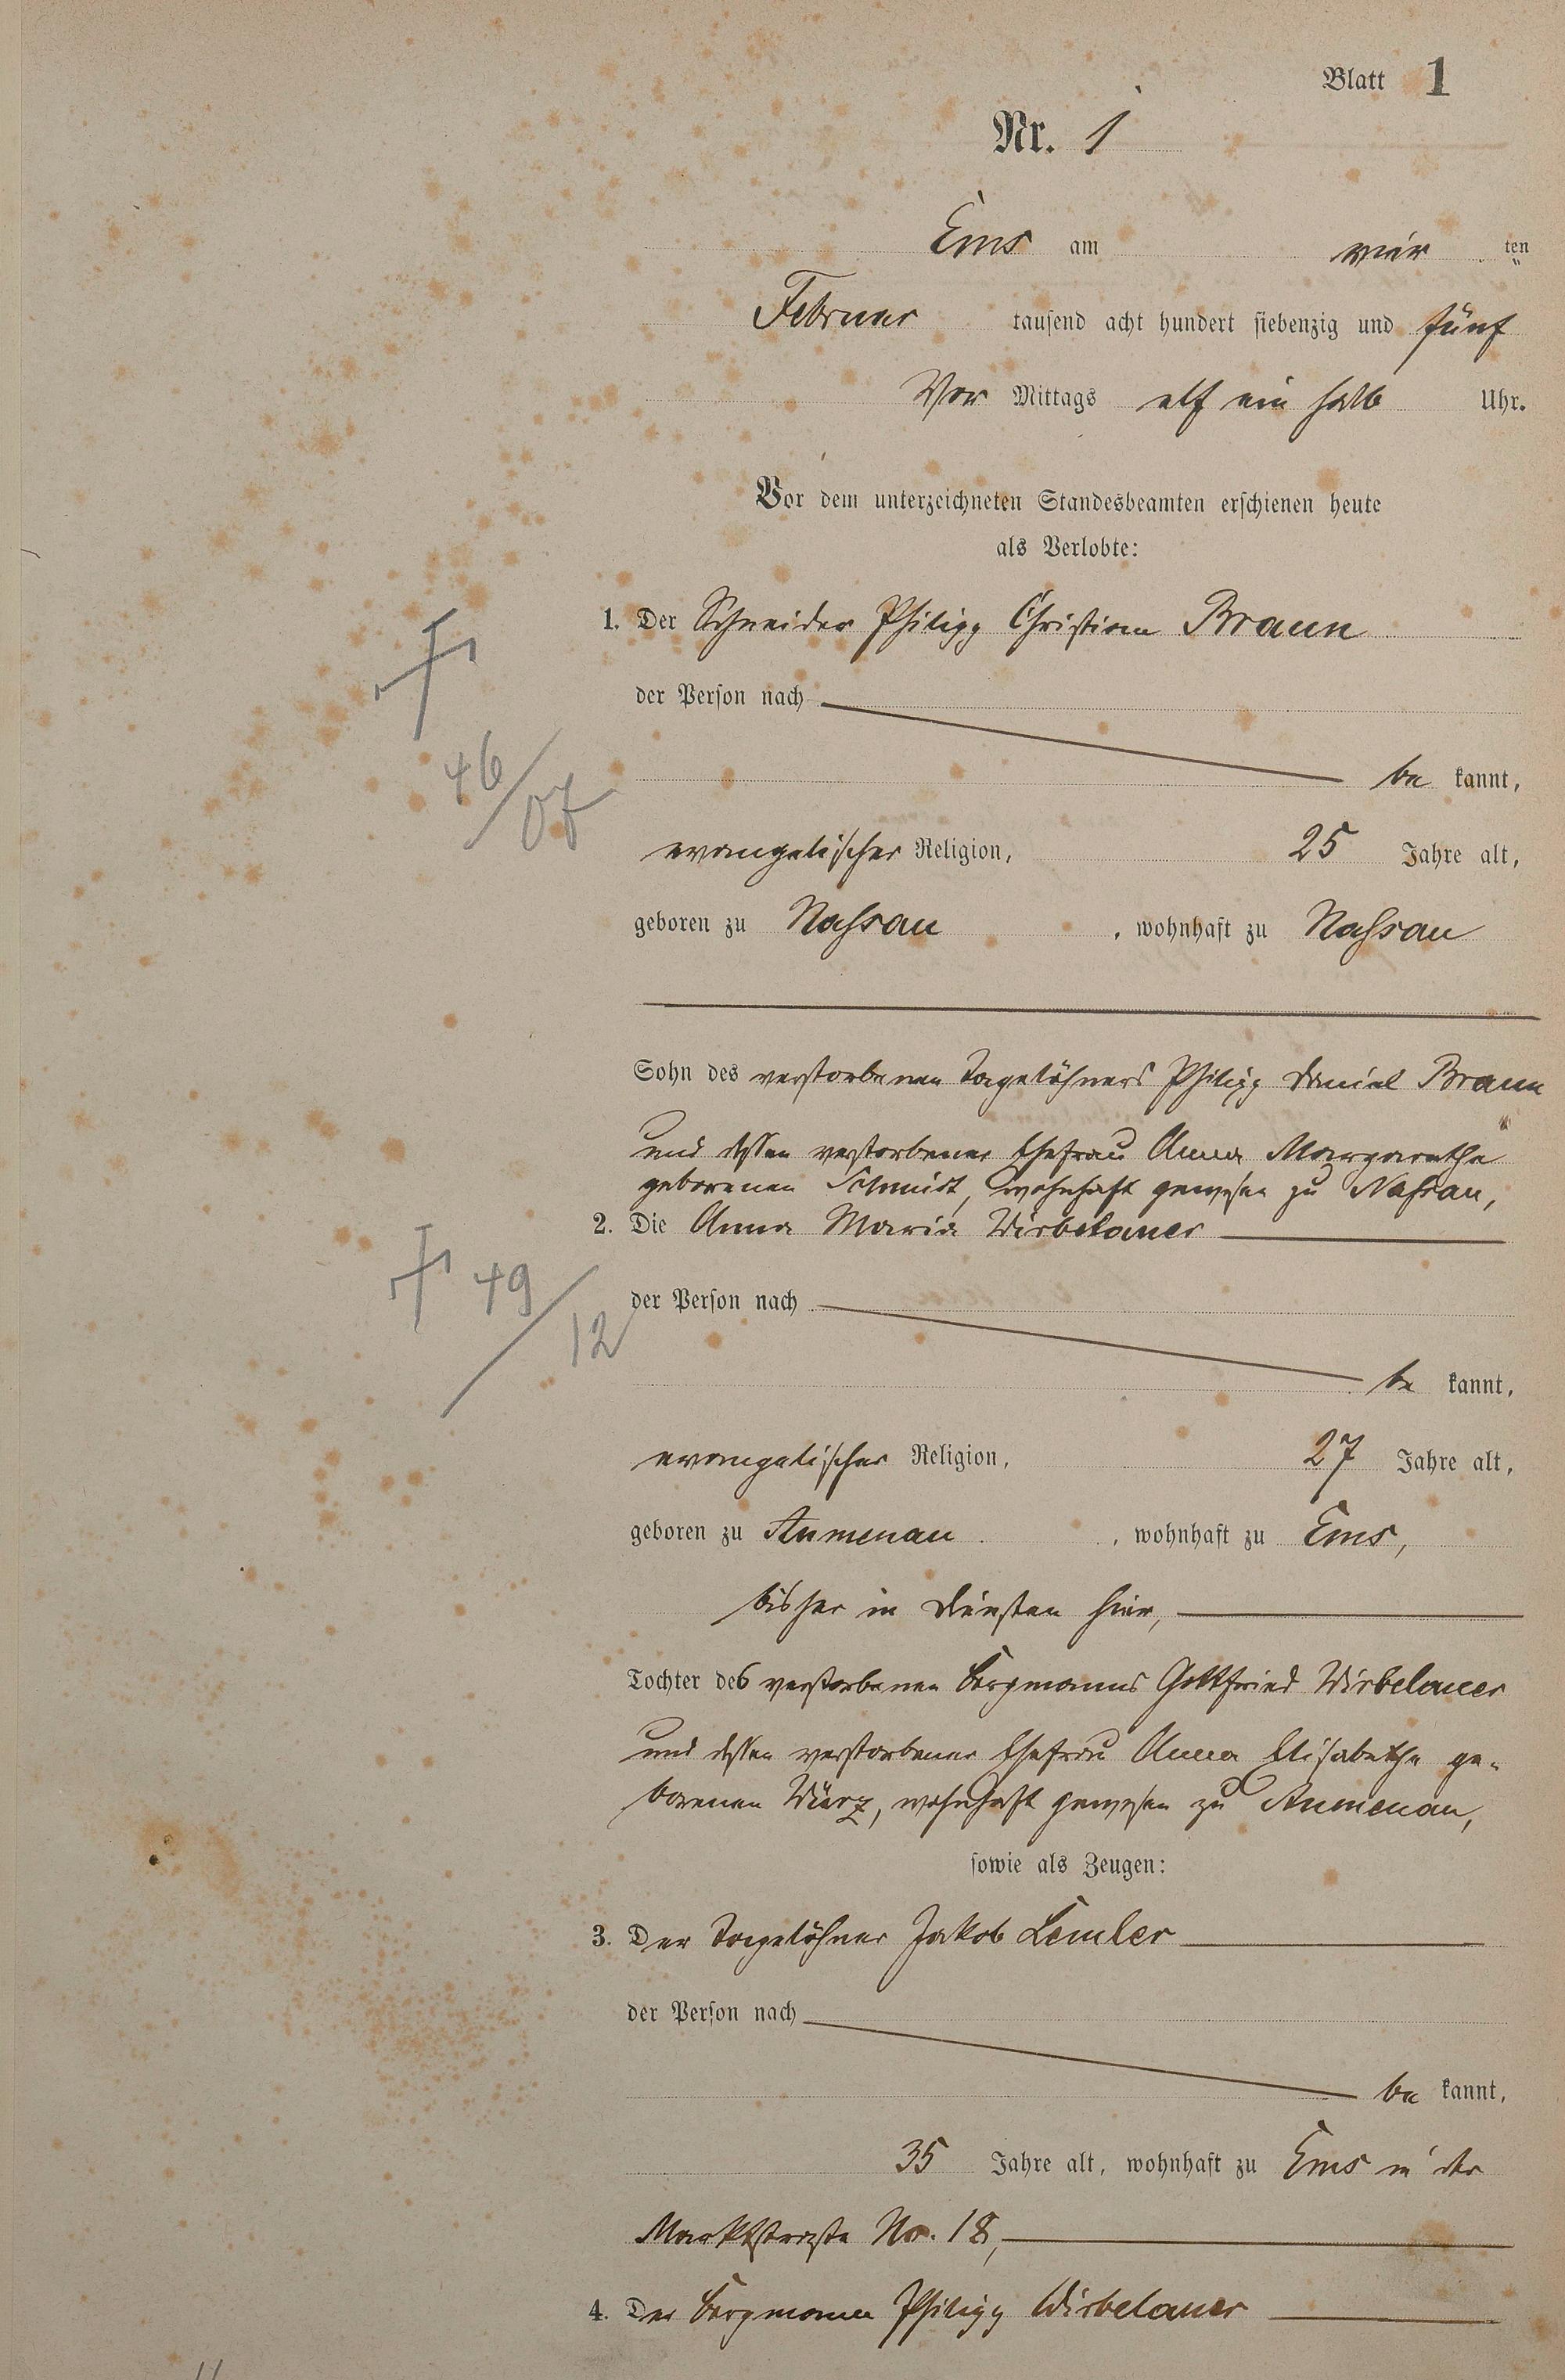 Blatt 1
Nr. 1
Ems am vier ten
Februar tausend acht hundert siebenzig und fünf
Vor Mittags elf ein halb Uhr.
Vor dem unterzeichneten Standesbeamten erschienen heute
als Verlobte:
1. Der Schneider Philipp Christian Braun
der Person nach
be kannt,
46/07
evangelischer Religion, 25 Jahre alt,
geboren zu Nassau, wohnhaft zu Nassau
Sohn des verstorbenen Tagelöhners Philipp Daniel Braun
und dessen verstorbener Ehefrau Anna Margarethe
geborenen Schmidt, wohnhaft gewesen zu Nassau,
2. Die Anna Maria Wirbelauer
49/12
der Person nach
be kannt,
evangelischer Religion, 27 Jahre alt,
geboren zu Aumenau, wohnhaft zu Ems,
bisher in Diensten hier,
Tochter des verstorbenen Bergmanns Gottfried Wirbelauer
und dessen verstorbener Ehefrau Anna Elisabethe ge-
borenen Würz, wohnhaft gewesen zu Aumenau,
sowie als Zeugen:
3. Der Tagelöhner Jakob Lemler
der Person nach
be kannt,
35 Jahre alt, wohnhaft zu Ems in der
Marktstraße No. 18,
4. Der Bergmann Philipp Wirbelauer